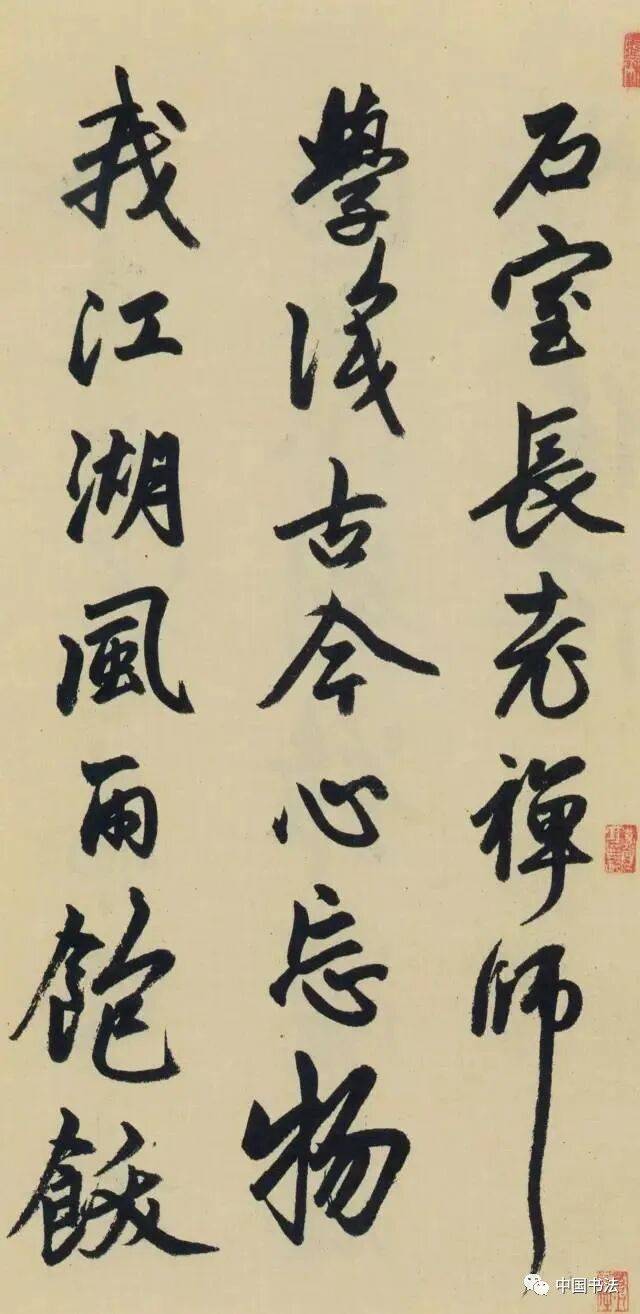 石室長老禪師
學識古今心忘物
我江湖風雨飽飫
中国书法